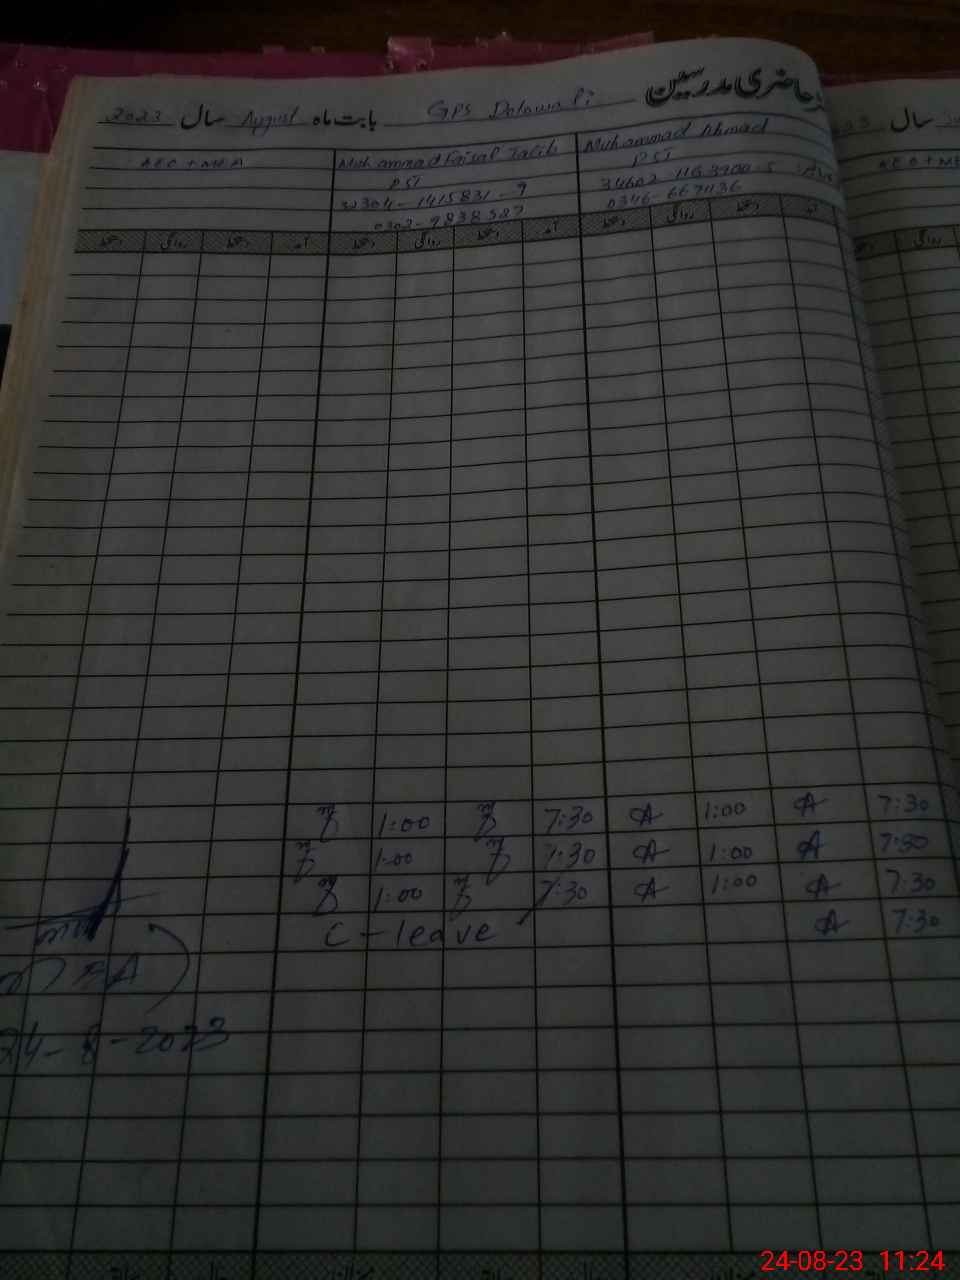 حاضری مدرسین GPS بابت ماہ August سال 2023
سال
Muhammad Ahmad
Muhammad Faisal Talib
AEO + MEA
PST
PST
34602
32304-1415831-9
0346-667436
0302-9838527
آمد دستخط روانگی دستخط آمد دستخط روانگی دستخط آمد دستخط روانگی دستخط
1:00 7:30 A 1:00 A 7:30
1:00 7:30 A 1:00 A 7:30
1:00 7:30 A 1:00 A 7:30
C-leave A 7:30
MEA
24-8-2023
24-08-23 11:24